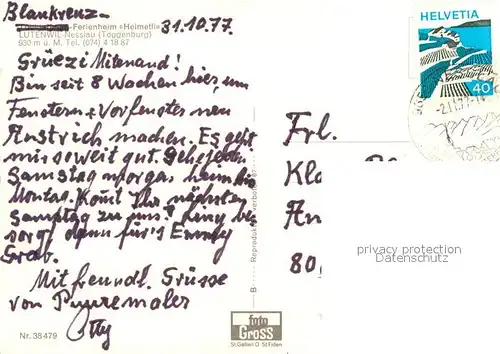 Blaukreuz-
-Ferienheim «Heimetli»
LUTENWIL-Nesslau (Toggenburg)
930 m ü. M. Tel. (074) 4 18 87
31.10.77.
Grüezi Mitenand!
Bin seit 8 Wochen hier, um
Fenstern + Vorfenster neu
Anstrich machen. Es geht
mir soweit gut. Gehe jeden
Samstag morgas heim bis
Montag. Komt Ihr nächsten
Samstag zu uns? Liny be-
sorgt dann für's Emmy
Grab.
Mit freundl. Grüsse
von Puuremaler
Nr. 38479
Reproduktion verboten
foto
Gross
St.Gallen O St.Fiden
HELVETIA
40
-2.11.77-
Frl.
An
80
privacy protection
Datenschutz